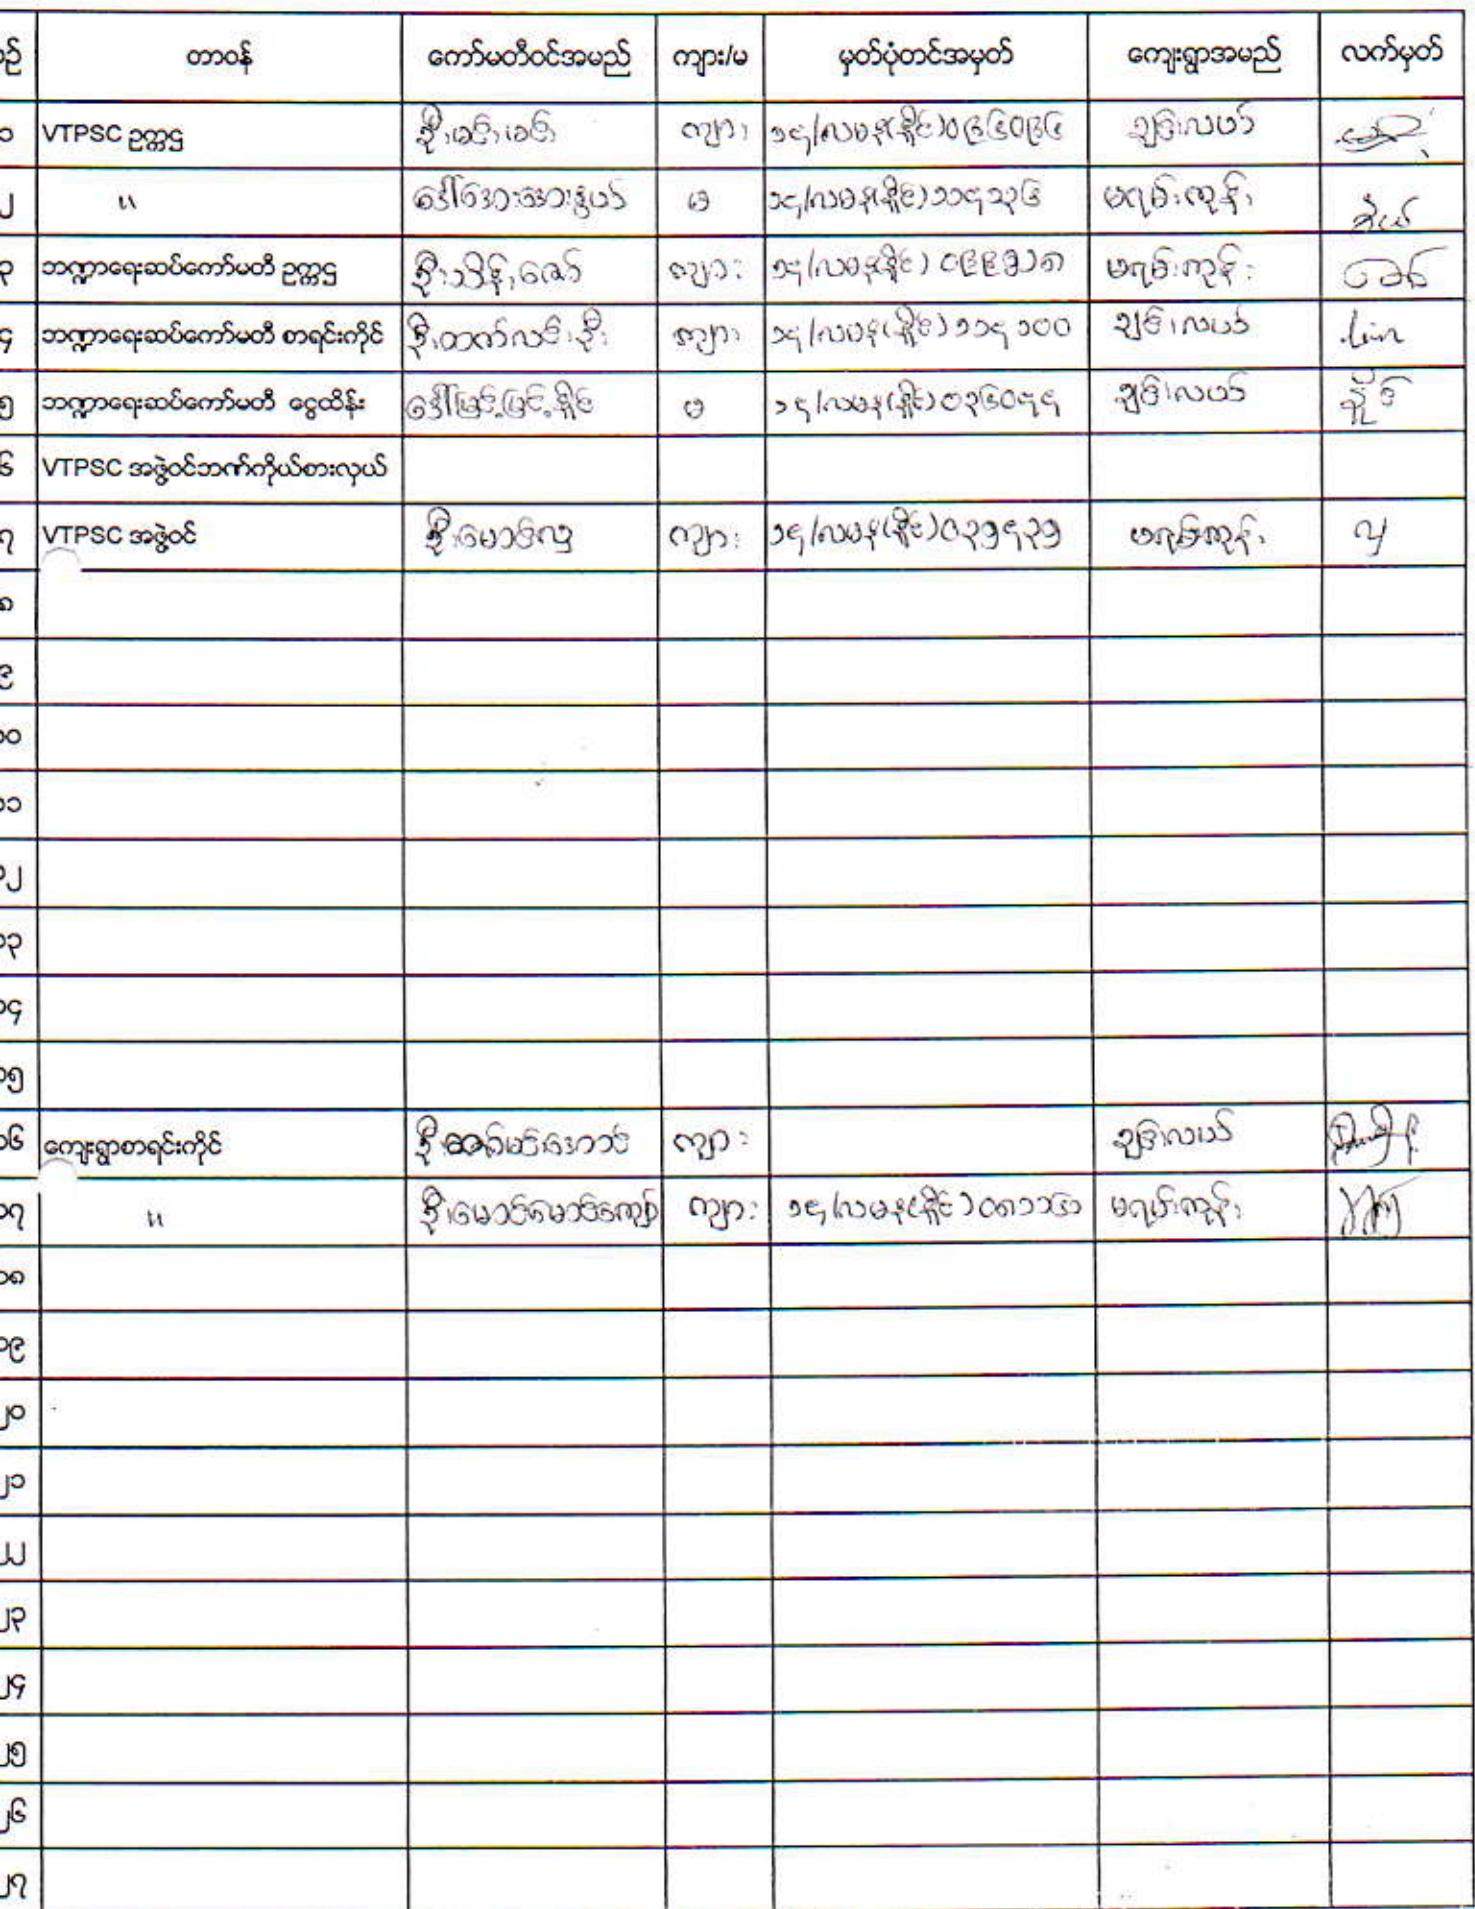 စဉ် တာဝန် ကော်မတီဝင်အမည် ကျား/မ မှတ်ပုံတင်အမှတ် ကျေးရွာအမည် လက်မှတ်
၁ VTPSC ဥက္ကဌ ဦး ကျား ၁၄/လမန(နိုင်)၀၉၆၀၉၄ ချင်းလယ်
၂ " ဒေါ်အေးအေးနွယ် မ ၁၄/လမန(နိုင်)၁၁၄၃၃၆ မရမ်းကုန်း
၃ ဘဏ္ဍာရေးဆပ်ကော်မတီ ဥက္ကဌ ဦးသိန်းဇော် ကျား မရမ်းကုန်း
၄ ဘဏ္ဍာရေးဆပ်ကော်မတီ စာရင်းကိုင် ဦးတက်လင်းဦး ကျား ၁၄/လမန(နိုင်)၁၁၄၁၀၀ ချင်းလယ် Lin
၅ ဘဏ္ဍာရေးဆပ်ကော်မတီ ငွေထိန်း ဒေါ်မြင့်မြင့်ခိုင် မ ၁၄/လမန(နိုင်)၀၃၆၀၄၄ ချင်းလယ်
၆ VTPSC အဖွဲ့ဝင်ဘဏ်ကိုယ်စားလှယ်
၇ VTPSC အဖွဲ့ဝင် ဦးမောင်လှ ကျား ၁၄/လမန(နိုင်)၀၃၅၄၃၅ မရမ်းကုန်း လှ
၈
၉
၁၀
၁၁
၁၂
၁၃
၁၄
၁၅
၁၆ ကျေးရွာစာရင်းကိုင် ဦး ကျား ချင်းလယ်
၁၇ " ဦးမောင်မောင်ကျော် ကျား မရမ်းကုန်း
၁၈
၁၉
၂၀
၂၁
၂၂
၂၃
၂၄
၂၅
၂၆
၂၇